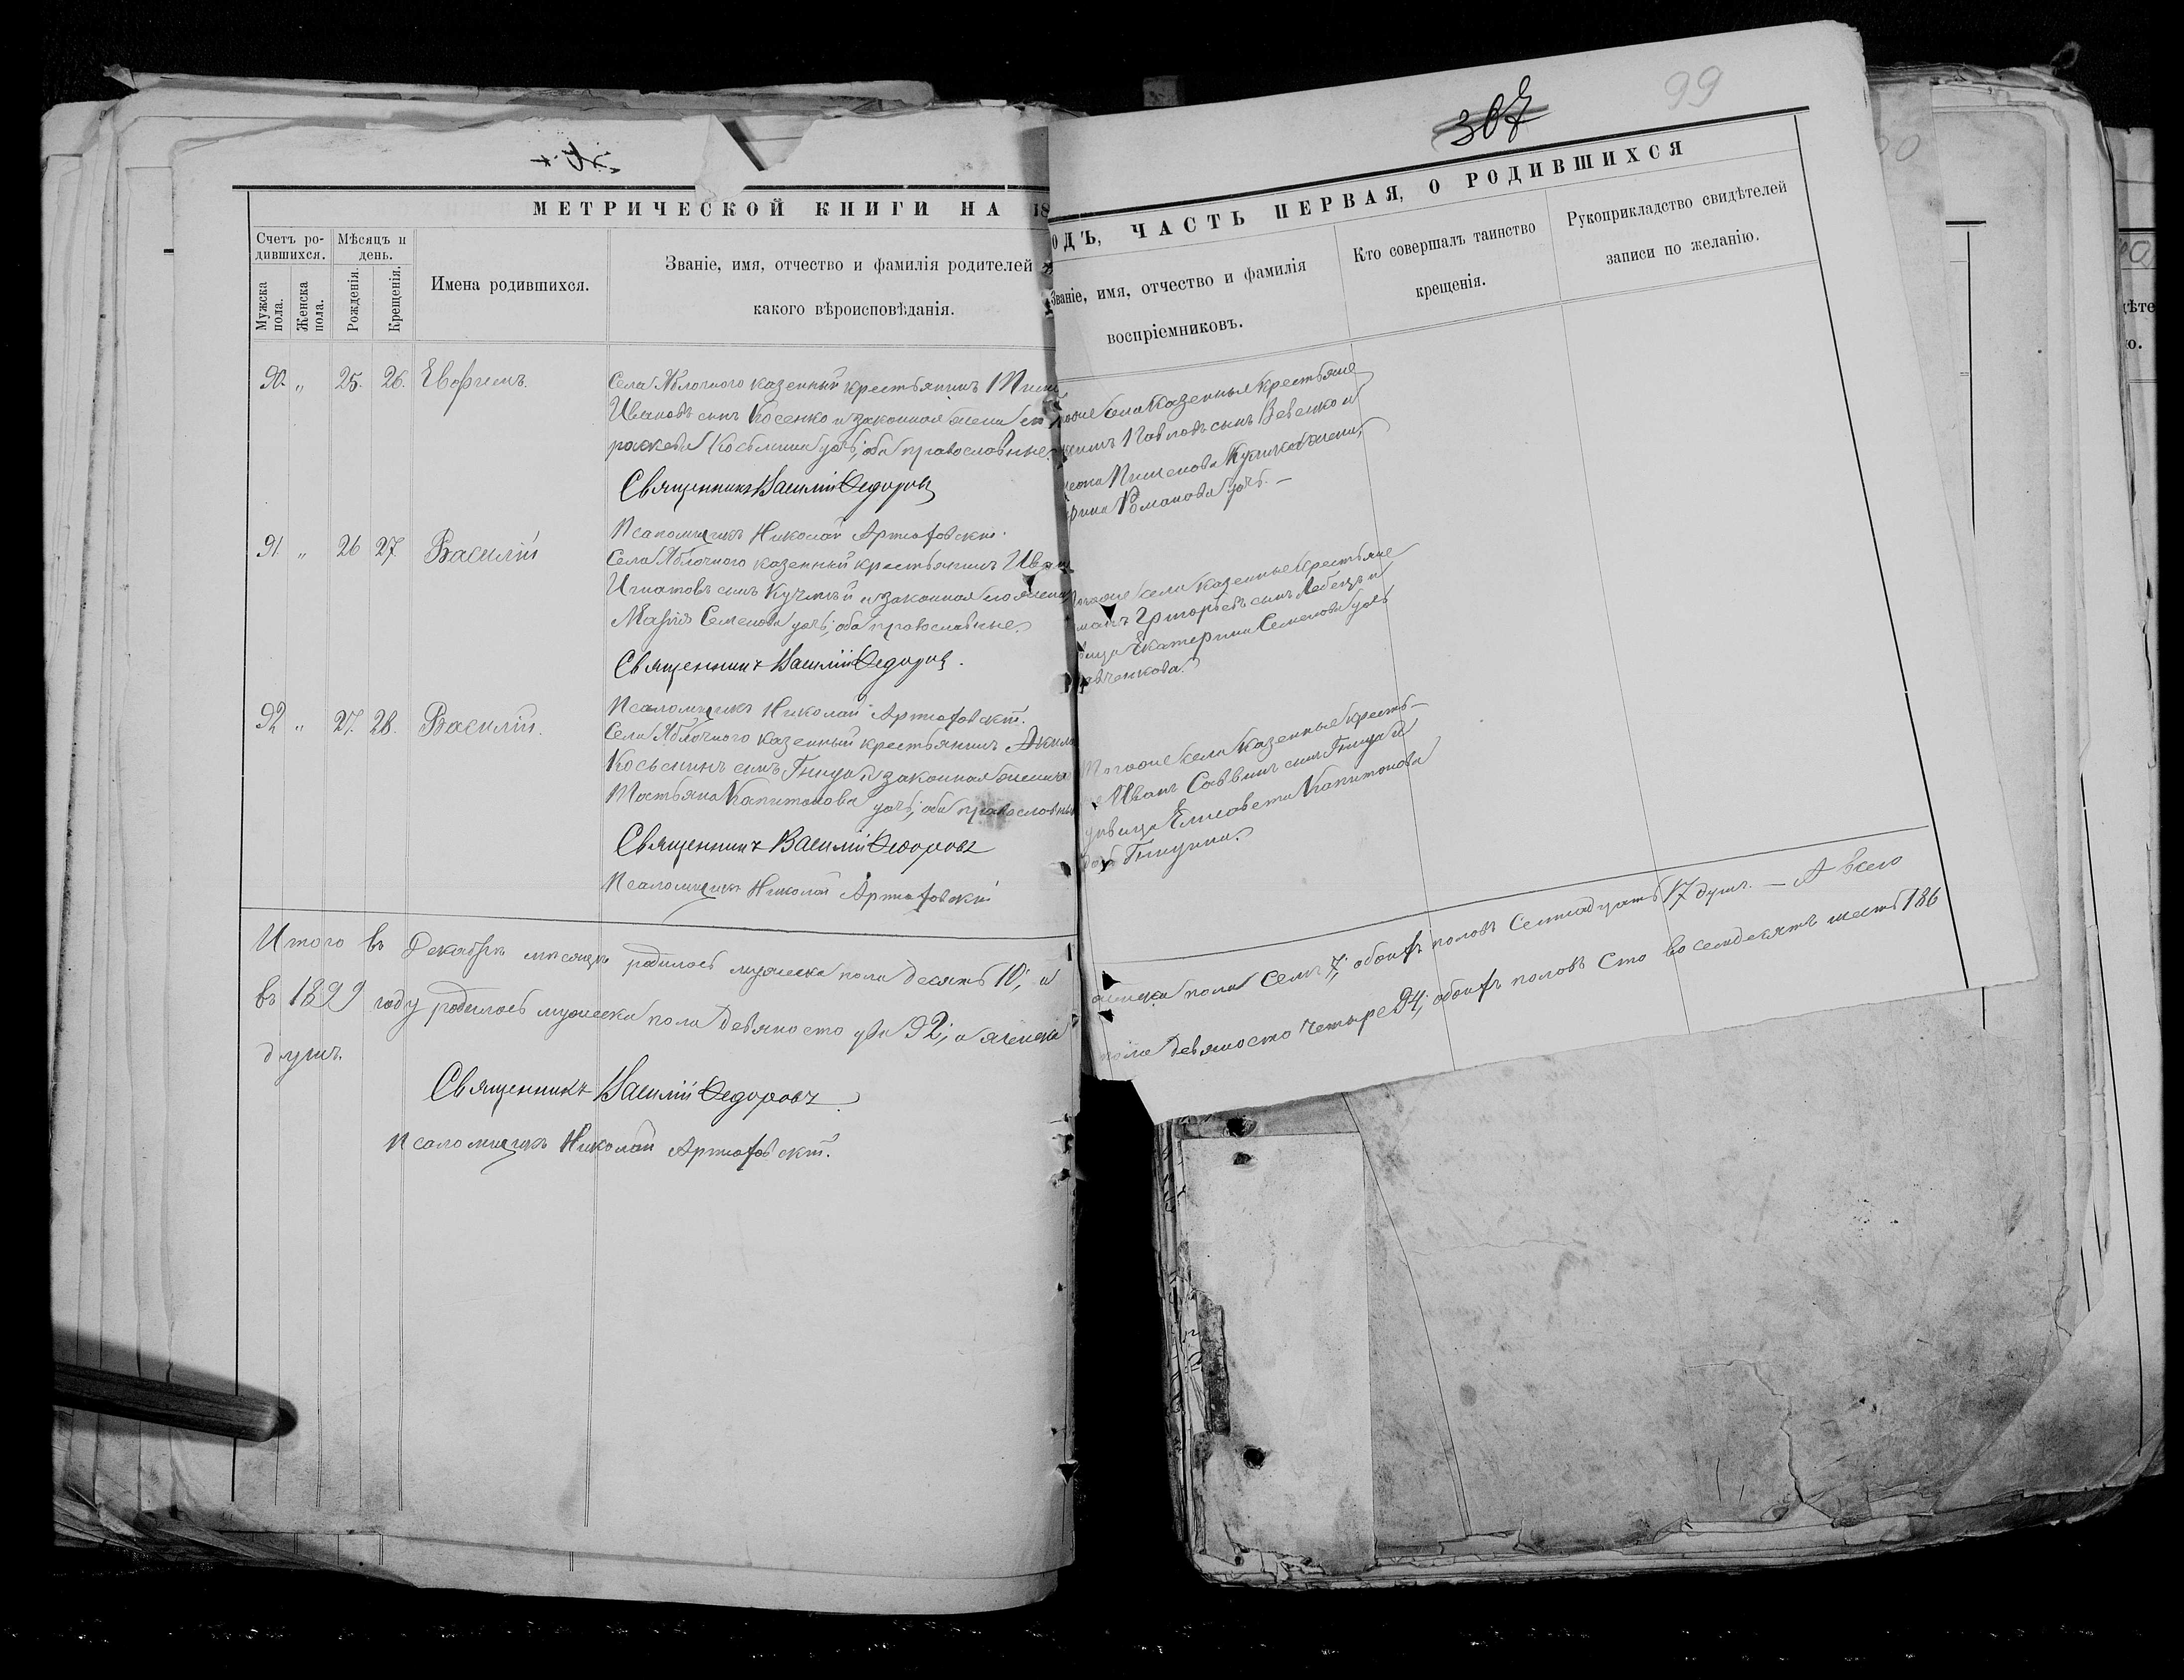 МЕТРИЧЕСКОЙ КНИГИ НА 18
Счетъ ро-
дившихся.
Мужска
пола.
Женска
пола.
Мѣсяцъ и
день.
Рожденія.
Крещенія.
Имена родившихся.
Званіе, имя, отчество и фамилія родителей и
какого вѣроисповѣданія.
90. „ 25. 26. Евфимъ.
Села Яблочного казенный крестьянинъ
Ивановъ сынъ Косенко и законная жена его
раскева Косьмина дочь; оба православные.
Священникъ Василій Федоровъ
Псаломщикъ Николай Артюховскій.
91. „ 26 27 Василій
Села Яблочного казенный крестьянинъ Иван
Игнатовъ сынъ и законная его жена
Марія Семенова дочь; оба православные.
Священникъ Василій Федоровъ.
Псаломщикъ Николай Артюховскій.
92 „ 27. 28. Василій.
Села Яблочного казенный крестьянинъ Акила
Косьминъ сынъ Гнида и законная жена
Татьяна Капитонова дочь; оба православны
Священникъ Василій Федоровъ
Псаломщикъ Николай Артюховскій
Итого въ Декабрѣ мѣсяцѣ родилось мужска пола десять 10; а
въ 1899 году родилось мужеска пола девяносто два 92; а женска
душъ.
Священникъ Василій Федоровъ
Псаломщикъ Николай Артюховскій.
99
307
ОДЪ, ЧАСТЬ ПЕРВАЯ, О РОДИВШИХСЯ
Званіе, имя, отчество и фамилія
воспріемниковъ.
Кто совершалъ таинство
крещенія.
Рукоприкладство свидѣтелей
записи по желанію.
тогоже села казенные крестьяне
Павловъ сынъ и
жена,
Романова дочь. —
тогоже села казенные крестьяне
Григорьевъ сынъ Лебедь и
Екатерина Семенова дочь
Тогоже села казенные кресть-
Иванъ Саввинъ сынъ Гнида и
дѣвица Елисавета Капитонова
дочь Гнидина.
женска пола семь 7; обоихъ половъ семнадцать 17 душъ. — А всего
пола девяносто четыре 94; обоихъ половъ сто восемдесятъ шесть 186